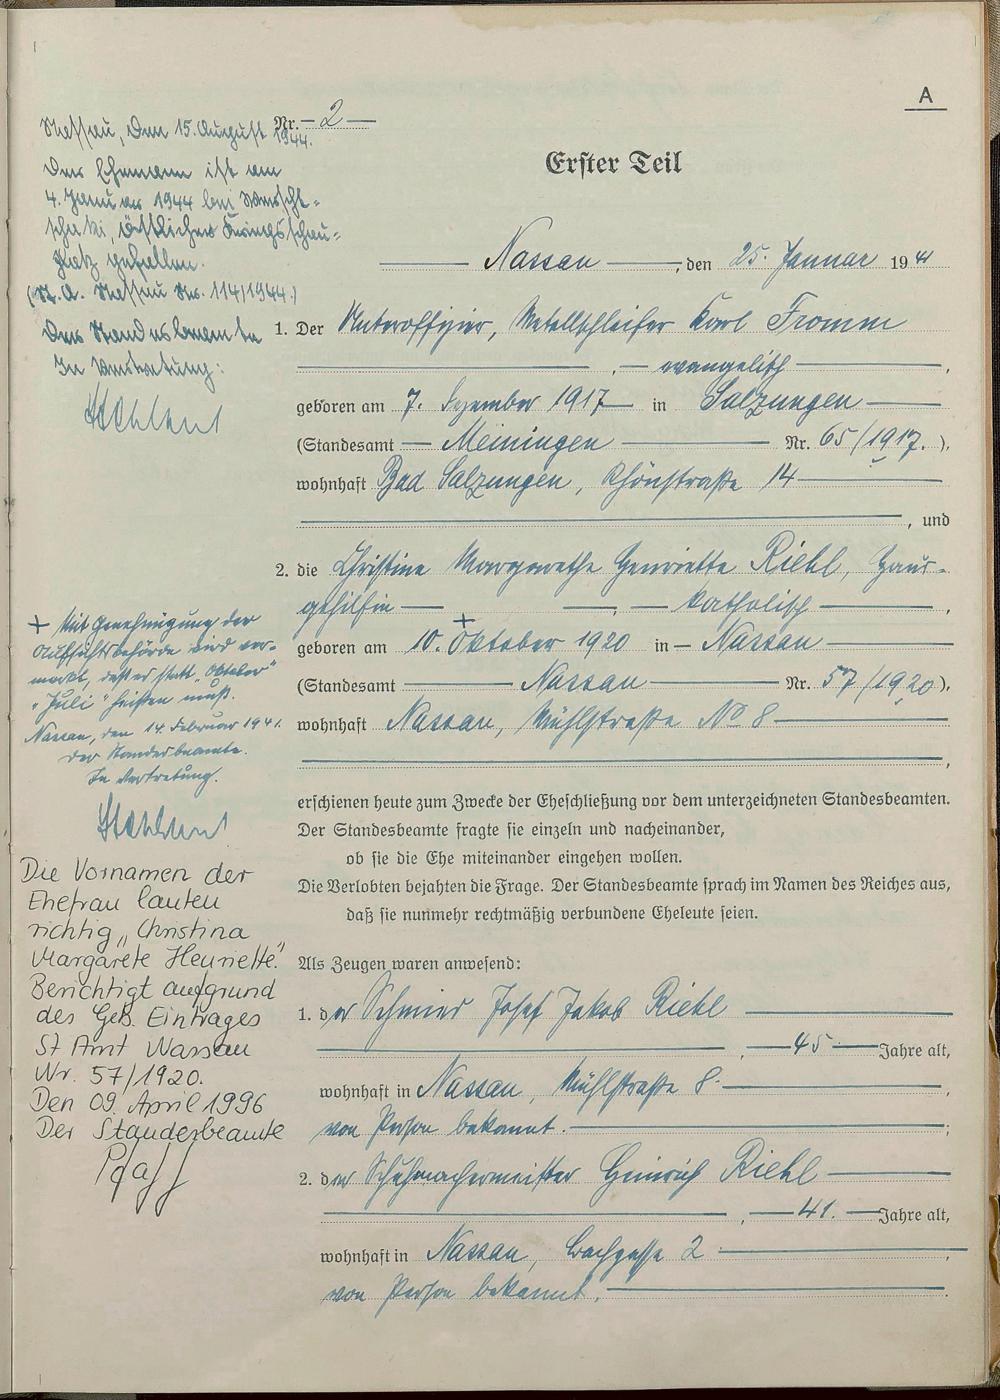 A
Nr. 2
Erster Teil
Nassau, den 25. Januar 1941
1. Der Unteroffizier, Metallschleifer Karl Fromm
, evangelisch ,
geboren am 7. Dezember 1917 in Salzungen
(Standesamt Meiningen Nr. 65/1917.).
wohnhaft Bad Salzungen, Rhönstraße 14
, und
2. die Christine Margarethe Henriette Riehl, Haus-
gehilfin , katholisch ,
geboren am 10. + Oktober 1920 in Nassau
(Standesamt Nassau Nr. 57/1920).
wohnhaft Nassau, Mühlstraße No 8
,
erschienen heute zum Zwecke der Eheschließung vor dem unterzeichneten Standesbeamten.
Der Standesbeamte fragte sie einzeln und nacheinander,
ob sie die Ehe miteinander eingehen wollen.
Die Verlobten bejahten die Frage. Der Standesbeamte sprach im Namen des Reiches aus,
daß sie nunmehr rechtmäßig verbundene Eheleute seien.
Als Zeugen waren anwesend:
1. der Schmied Josef Jakob Riehl
, 45 Jahre alt,
wohnhaft in Nassau, Mühlstraße 8. ,
von Person bekannt. ;
2. der Schuhmachermeister Heinrich Riehl
, 41. Jahre alt,
wohnhaft in Nassau, Bachgasse 2 ,
von Person bekannt. .
Nassau, den 15. August 1944.
Der Ehemann ist am
4. Januar 1944 bei
östlicher Kriegsschau-
platz gefallen.
(St. A. Nassau Nr. 114/1944.)
Der Standesbeamte
In Vertretung:
+ Mit Genehmigung der
Aufsichtsbehörde wird ver-
merkt, daß es statt "Oktober"
"Juli" heißen muß.
Nassau, den 14. Februar 1941.
Der Standesbeamte.
In Vertretung.
Die Vornamen der
Ehefrau lauten
richtig „Christina
Margarete Henriette".
Berichtigt aufgrund
des Geb. Eintrages
St Amt Nassau
Nr. 57/1920.
Den 09. April 1996
Der Standesbeamte
Pfaff